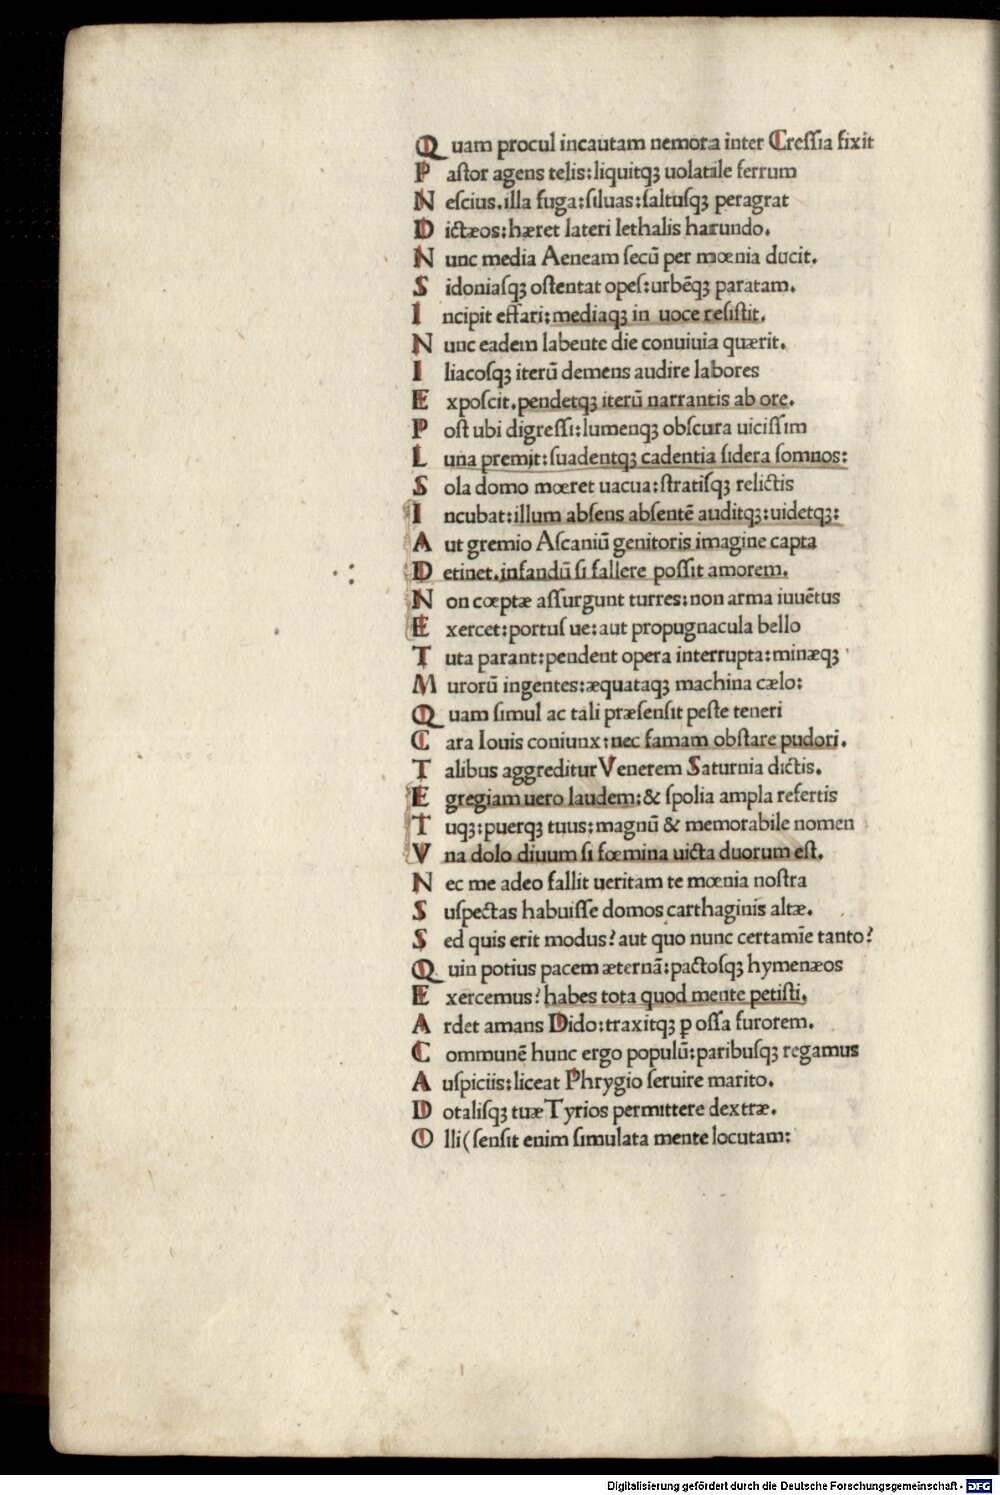 Quam procul incautam nemora inter Cressia fixit
Pastor agens telis: liquitqꝫ uolatile ferrum
Nescius. illa fuga: siluas: saltusqꝫ peragrat
Dictæos: hæret lateri lethalis harundo.
Nunc media Aeneam secū per mœnia ducit.
Sidoniasqꝫ ostentat opes: urbēqꝫ paratam.
Incipit effari: mediaqꝫ in uoce resistit.
Nunc eadem labente die conuiuia quærit.
Iliacosqꝫ iterū demens audire labores
Exposcit. pendetqꝫ iterū narrantis ab ore.
Post ubi digressi: lumenqꝫ obscura uicissim
Luna premit: suadentqꝫ cadentia sidera somnos:
Sola domo mœret uacua: stratisqꝫ relictis
Incubat: illum absens absentē auditqꝫ: uidetqꝫ:
Aut gremio Ascaniū genitoris imagine capta
Detinet. infandū si fallere possit amorem.
Non cœptæ assurgunt turres: non arma iuuētus
Exercet: portus ue: aut propugnacula bello
Tuta parant: pendent opera interrupta: minæqꝫ
Murorū ingentes: æquataqꝫ machina cælo:
Quam simul ac tali præsensit peste teneri
Cara Iouis coniunx: nec famam obstare pudori.
Talibus aggreditur Venerem Saturnia dictis.
Egregiam uero laudem: & spolia ampla refertis
Tuqꝫ: puerqꝫ tuus: magnū & memorabile nomen
Vna dolo diuum si fœmina uicta duorum est.
Nec me adeo fallit ueritam te mœnia nostra
Suspectas habuisse domos carthaginis altæ.
Sed quis erit modus? aut quo nunc certamīe tanto?
Quin potius pacem æternā: pactosqꝫ hymenæos
Exercemus? habes tota quod mente petisti,
Ardet amans Dido: traxitqꝫ ꝑ ossa furorem.
Communē hunc ergo populū: paribusqꝫ regamus
Auspiciis: liceat Phrygio seruire marito.
Dotalisqꝫ tuæ Tyrios permittere dextræ.
Olli (sensit enim simulata mente locutam:
Digitalisierung gefördert durch die Deutsche Forschungsgemeinschaft - DFG